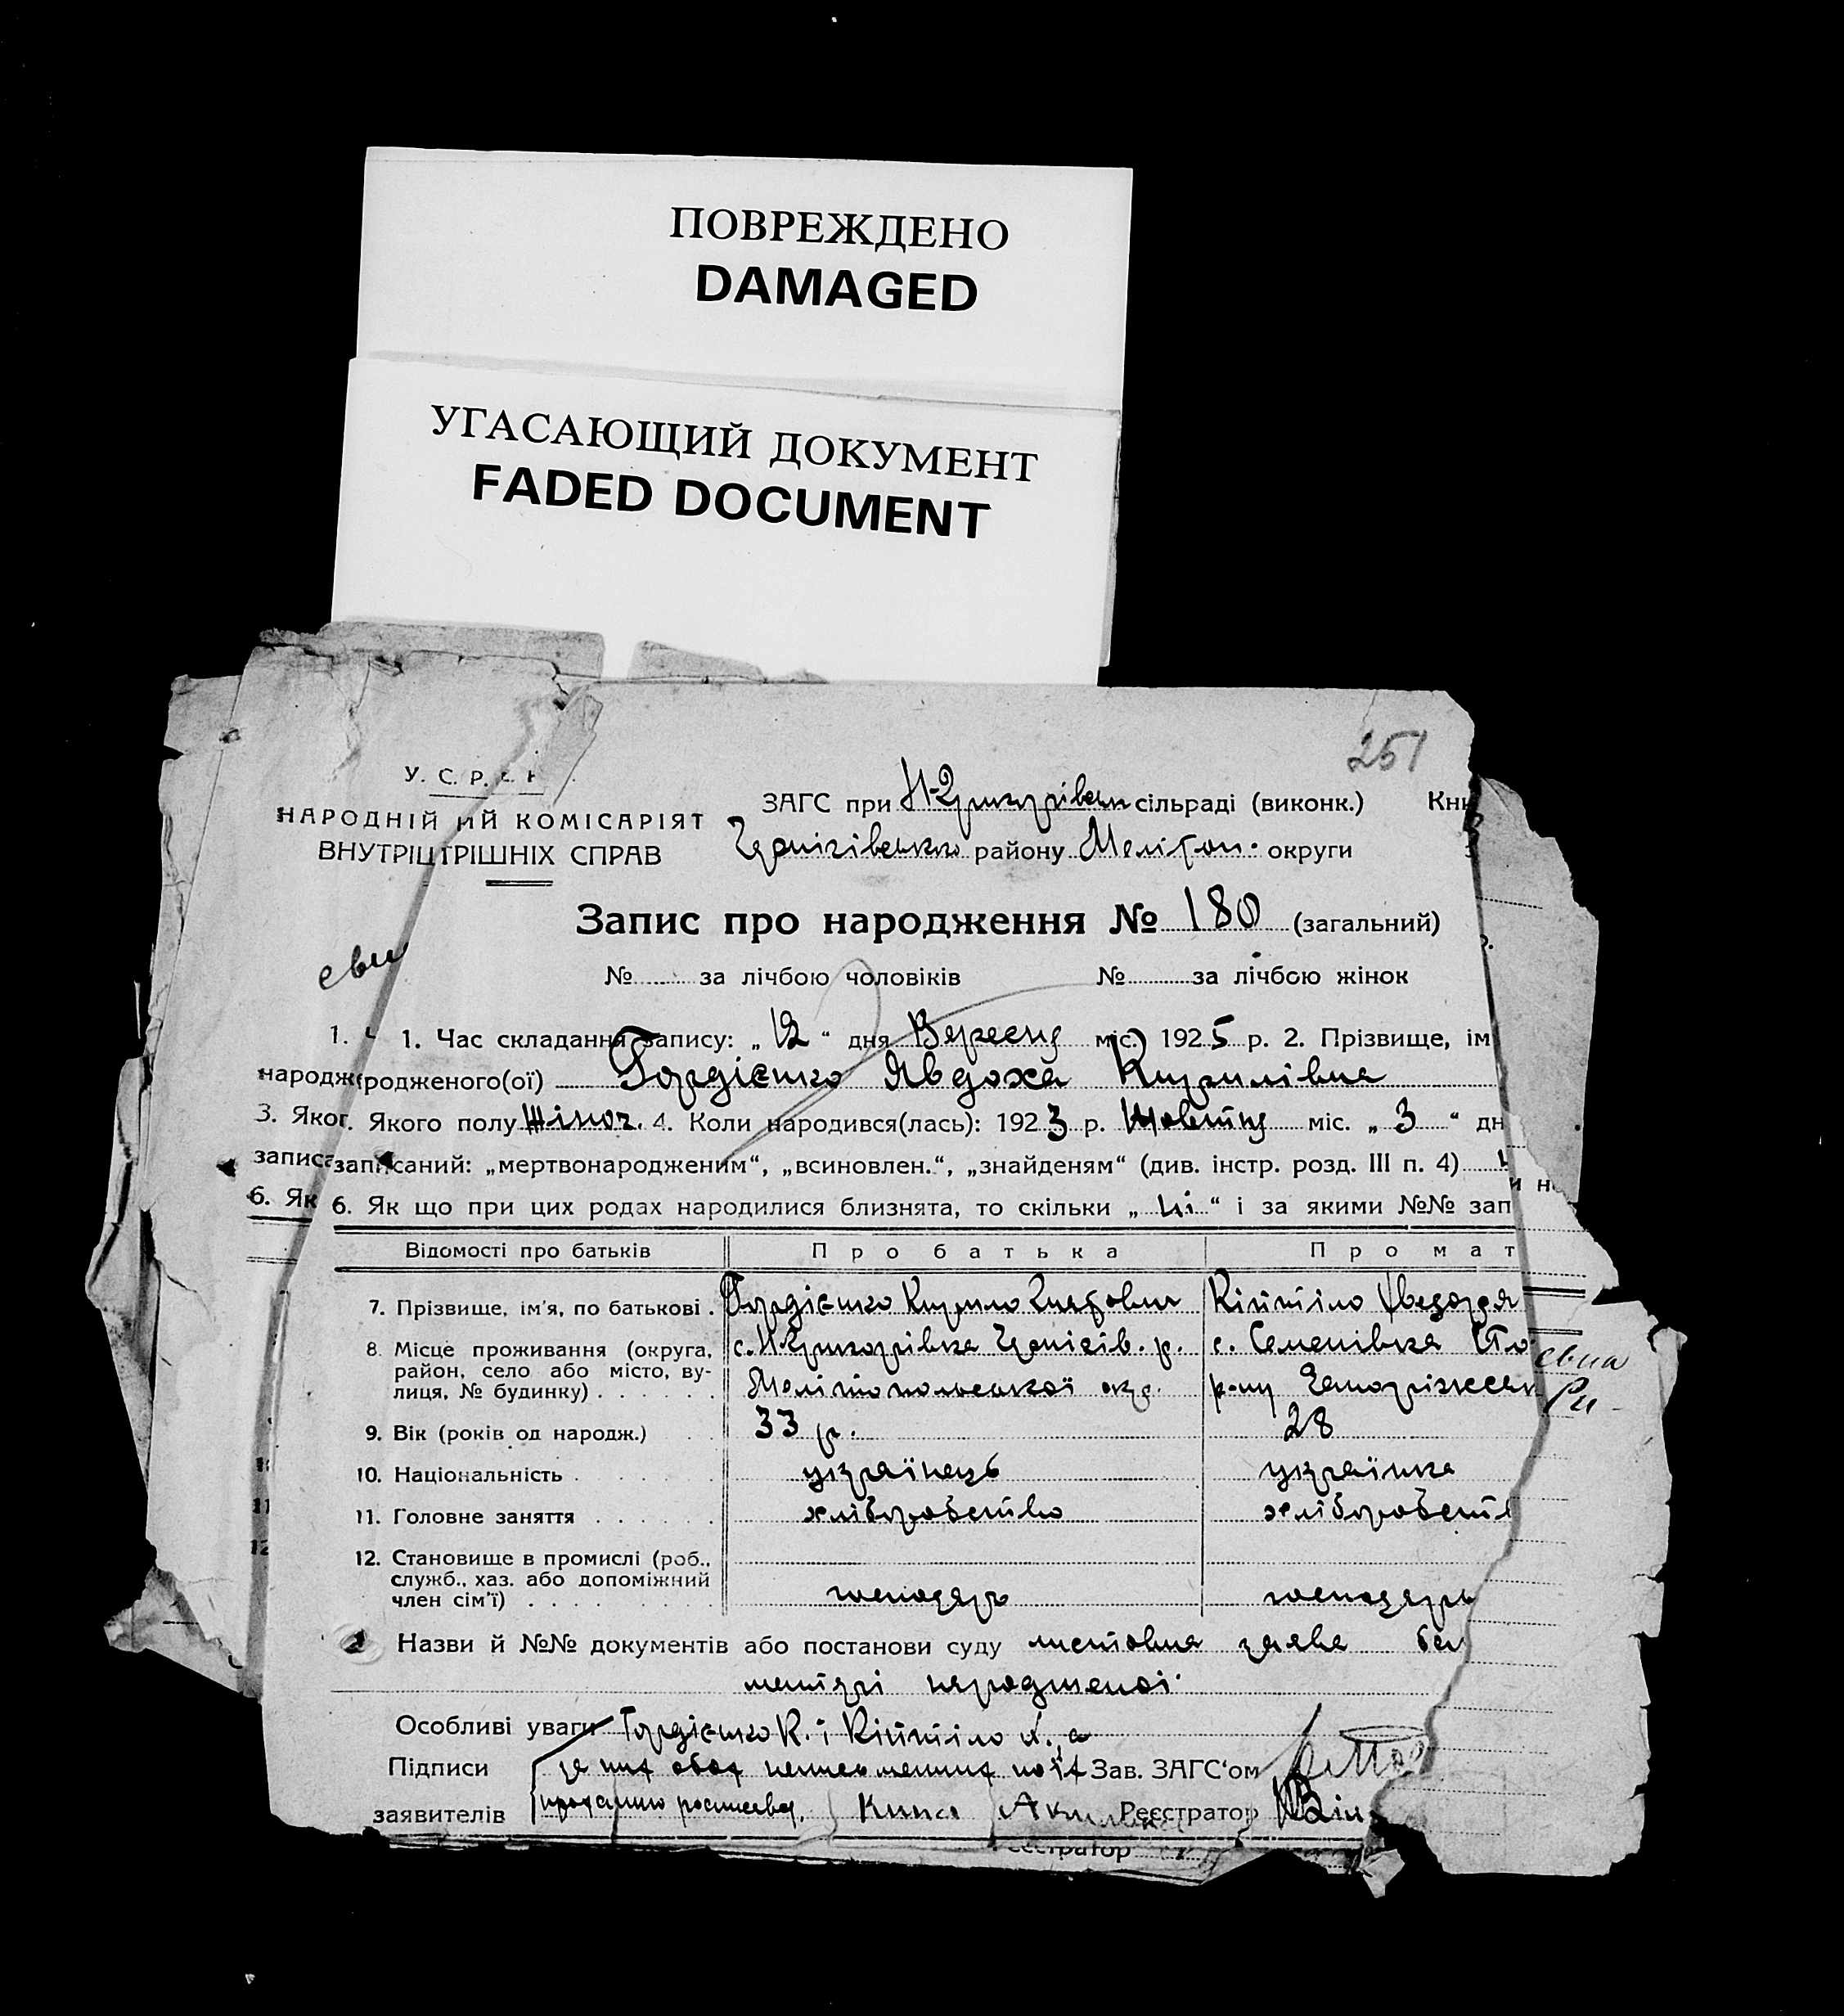 ПОВРЕЖДЕНО
DAMAGED
УГАСАЮЩИЙ ДОКУМЕНТ
FADED DOCUMENT
251
У. С. Р. Р.
ЗАГС при Н-Григорівськ сільраді (виконк.) Кни
НАРОДНІЙ ИЙ КОМІСАРІЯТ
Чернігівського району Мелітоп. округи
ВНУТРІШ ТРІШНІХ СПРАВ
Запис про народження № 180 (загальний)
№ за лічбою чоловіків № за лічбою жінок
1. 1. Час складання запису: „ 12 “ дня Вересня міс. 1925 р. 2. Прізвище, ім
народж родженого(ої) Гордієнко Явдоха Кирилівна
3. Яког . Якого полу Жіноч. 4. Коли народився(лась): 1923 р. Жовтня міс. „ 3 “ дн
записа записаний: „мертвонародженим“, „всиновлен.“, „знайденям“ (див. інстр. розд. III п. 4)
6. Як 6. Як що при цих родах народилися близнята, то скільки „ ні “ і за якими №№ зап
Відомості про батьків Про батька Про мат
7. Прізвище, ім'я, по батькові . Гордієнко Кирило
8. Місце проживання (округа, с. Н-Григорівка Чернігів. р. с. Семенівка
район, село або місто, ву-
лиця, № будинку) . . . . . . Мелітопольської окр. р-ну Запоріжськ
евна
9. Вік (років од народж.) . . 33 р. 28
10. Національність . . . . . . українець українка
11. Головне заняття . . . . . . хліборобство хліборобств
12. Становище в промислі (роб.,
служб., хаз. або допоміжний
член сім'ї) . . . . . . . . . господар господарь
Назви й №№ документів або постанови суду листовна заява
народженої.
Особливі уваги Гордієнко К. і
Підписи Зав. ЗАГС'ом
заявителів Реєстратор
еєстратор